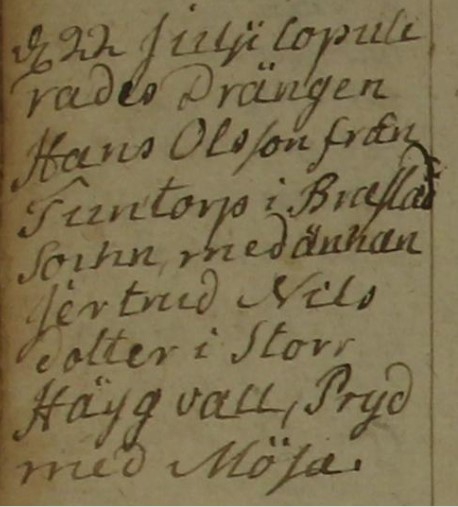 d. 22 Julji Copule
rades Drängen
Hans Olsson från
Tuntorp i Brastad
Sochn, med änkan
Jertrud Nils
dotter i Storr
Häggvall, Pryd
med Mösa.